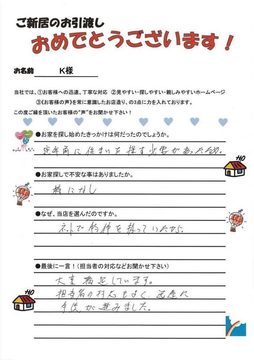 ご新居のお引渡し
おめでとうございます！
お名前 K様
当社では、①お客様への迅速、丁寧な対応 ②見やすい・探しやすい・親しみやすいホームページ
③《お客様の声》を常に意識したお店造り、の3点に力を入れております。
この度ご縁を頂いたお客様の“声”をお聞かせ下さい！
●お家を探し始めたきっかけは何だったのでしょうか。
に住まいを探す必要があったため。
●お家探しで不安な事はありましたか。
特になし
●なぜ、当店を選んだのですか。
ネットで物件を探していたから。
●最後に一言！（担当者の対応などお聞かせ下さい）
大変満足しています。
担当者の対応もよく、迅速に
手続が進みました。